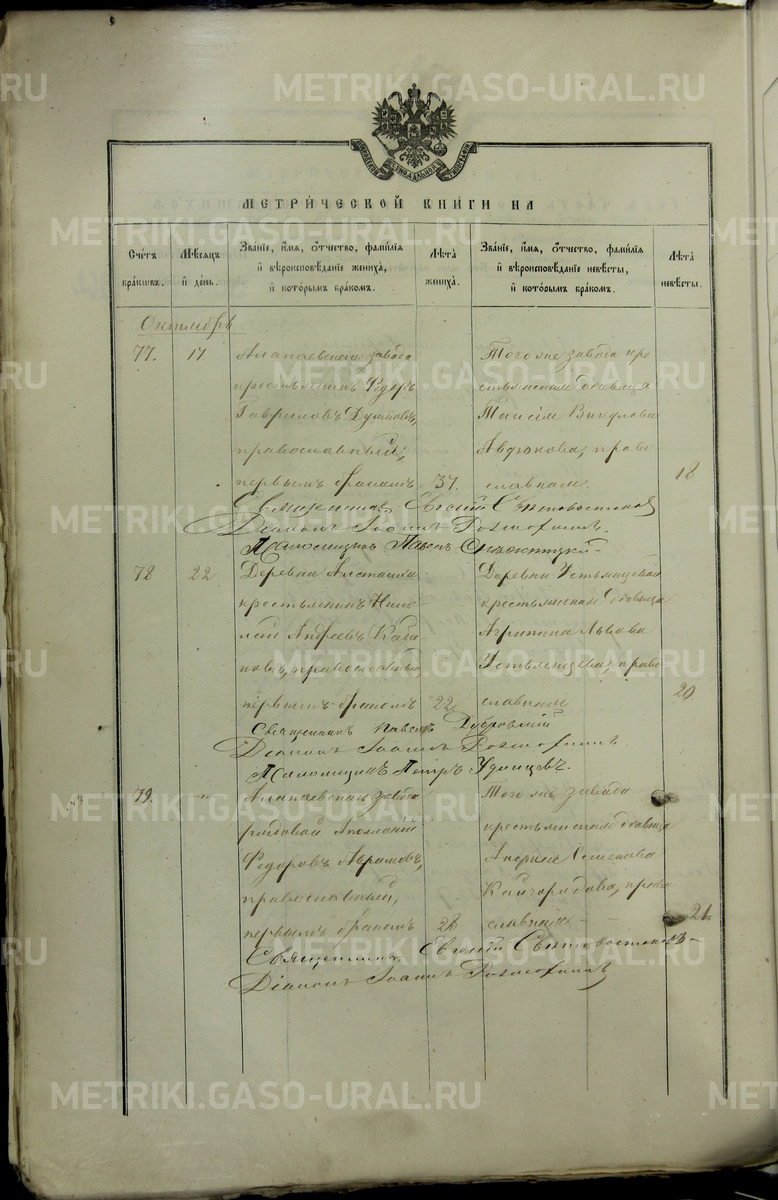 METRIKI.GASO-URAL.RU
МЕТРИ́ЧЕСКОЙ КНИ́ГИ НА
Сче́тъ бра́ковъ.
Мѣ́сяцъ и҆ де́нь.
Зва́нїе, и҆́мя, ѻ҆́тчество, фами́лїя и҆ вѣроисповѣ́данїе жениха̀, и҆ кото́рымъ бра́комъ.
Лѣ́та жениха̀.
Зва́нїе, и҆́мя, ѻ҆́тчество, фами́лїя и҆ вѣроисповѣ́данїе невѣ́сты, и҆ кото́рымъ бра́комъ.
Лѣ́та невѣ́сты.
Октябрь
77.
17
Алапаевскаго завода
крестьянинъ Ѳедоръ
Гавриловъ
православный,
первымъ бракомъ
37.
Того же завода кре
стьянская дѣвица
Таисія Викулова
Авдюкова, право
славная.
18
Священникъ Евгеній
Діаконъ Іоаннъ
Псаломщикъ Павелъ
78
22
Деревни
крестьянинъ Нико
лай Андреевъ Каба
ковъ, православный,
первымъ бракомъ
22
Деревни Устьянцевой
крестьянская дѣвица
Агрипина Львова
Устьянцева, право
славная
20
Священникъ Павелъ Дубровскій
Діаконъ Іоаннъ
Псаломщикъ Петръ Удинцевъ.
79.
"
Алапаевскаго завода
рядовой
Ѳедоровъ Абрамовъ,
православный,
первымъ бракомъ
28
Того же завода
крестьянская дѣвица
Семенова
Кайгородова, право
славная
21.
Священникъ Евгеній
Діаконъ Іоаннъ